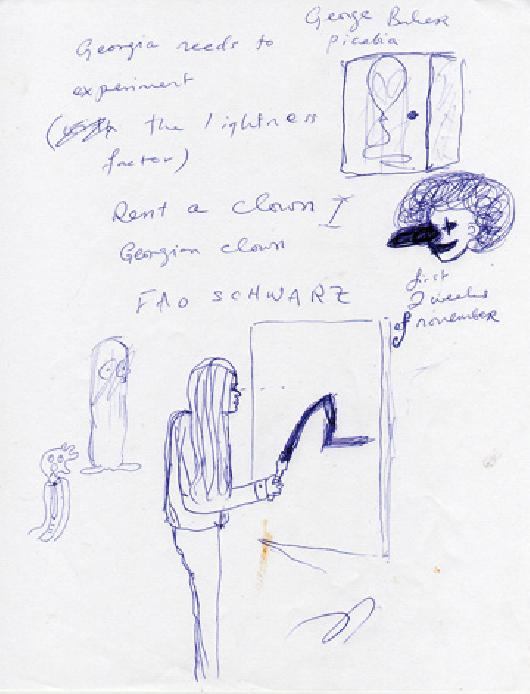 George Buker
picabia
Georgia needs to
experiment
( the lightness
factor)
Rent a clown I
Georgian clown
FAO SCHWARZ
first
2 weeks
of november